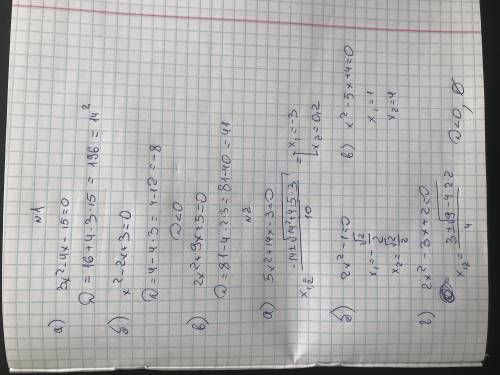 №1
а) 3x²-4x-15=0
D = 16+4·3·15 = 196 = 14²
б) x²-2x+3=0
D = 4-4·3 = 4-12 = -8
D<0
в) 2x²+9x+5=0
D = 81-4·2·5 = 81-40 = 41
№2
а) 5x²+14x-3=0
x₁,₂ = (-14±√(14²+4·5·3))/10 = [x₁=-3
[x₂=0,2
б) 2x²-1=0
x₁=-√2/2
x₂=√2/2
в) x²-5x+4=0
x₁=1
x₂=4
г) 2x²-3x+2=0
x₁,₂ = (3±√(9-4·2·2))/4
D<0, Ø